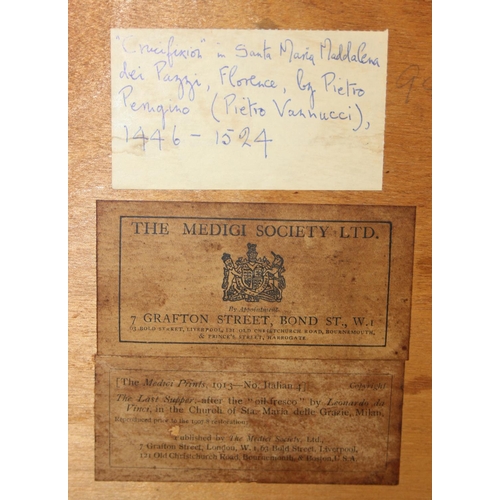 "Crucifixion" in Santa Maria Maddalena
dei Pazzi, Florence, by Pietro
Perugino (Pietro Vannucci),
1446 - 1524
THE MEDICI SOCIETY LTD.
By Appointment.
7 GRAFTON STREET, BOND ST., W.1
63 BOLD STREET, LIVERPOOL, 121 OLD CHRISTCHURCH ROAD, BOURNEMOUTH,
& PRINCE'S STREET, HARROGATE
[The Medici Prints, 1913—No. Italian
Copyright
The Last Supper, after the "oil-fresco" by Leonardo da
Vinci, in the Church of Sta. Maria delle Grazie, Milan.
Reproduced prior to the restoration
Published by The Medici Society, Ltd.,
7 Grafton Street, London, W.1, 63 Bold Street, Liverpool,
121 Old Christchurch Road, Bournemouth, & Boston, U.S.A.